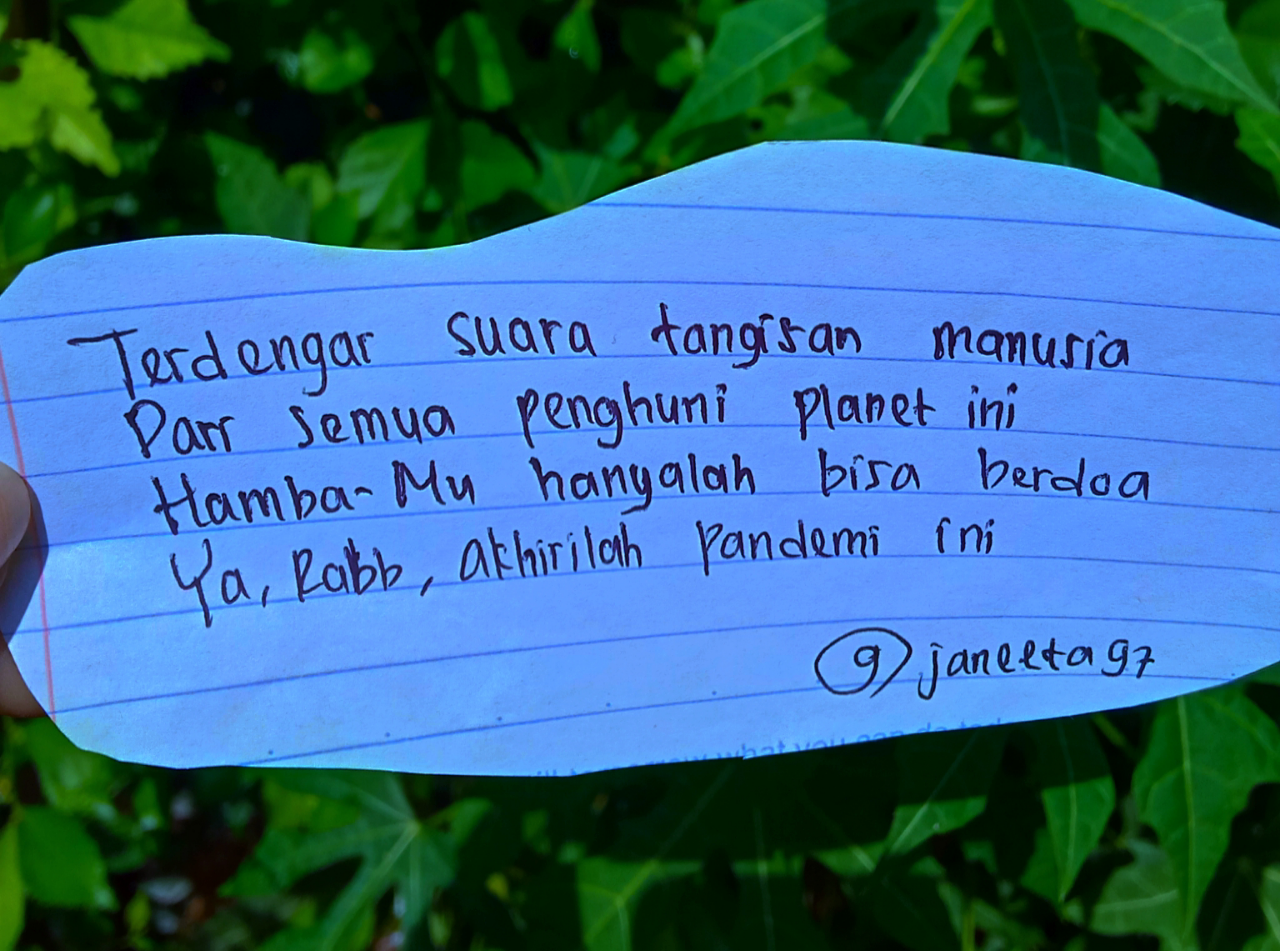 Terdengar suara tangisan manusia
Dari semua penghuni planet ini
Hamba-Mu hanyalah bisa berdoa
Ya, Rabb, akhirilah pandemi ini
@janeeta97
what you can do tod